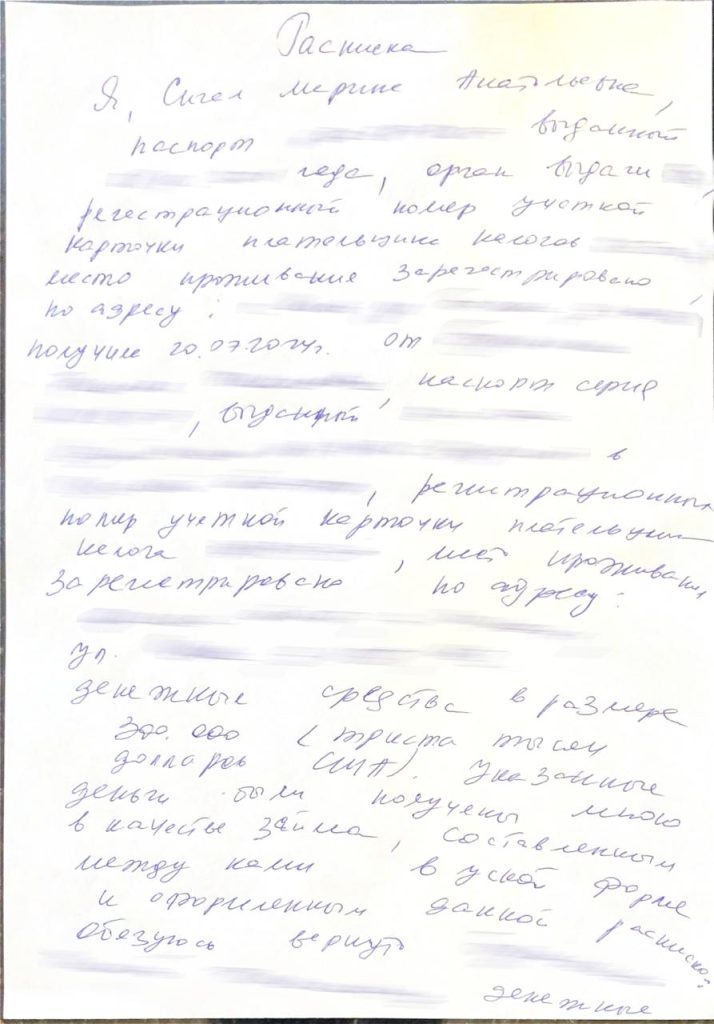 Расписка
Я, Сигал Марина Анатольевна,
паспорт выданный
года, орган выдачи ,
регестрационный номер учетной
карточки плательщика налогов
место проживание зарегестрировано
по адресу : ,
получила 20.07.2024г. от
, паспорт серия
, выданный
в
, регистрационный
номер учетной карточки плательщика
налога , место проживания
зарегистрировано по адресу:
ул.
денежные средства в размере
300.000 (триста тысяч
долларов США). Указанные
деньги были получены мною
в качестве займа, составленным
между нами в усной форме
и оформленным данной распиской
обязуюсь вернуть
денежные